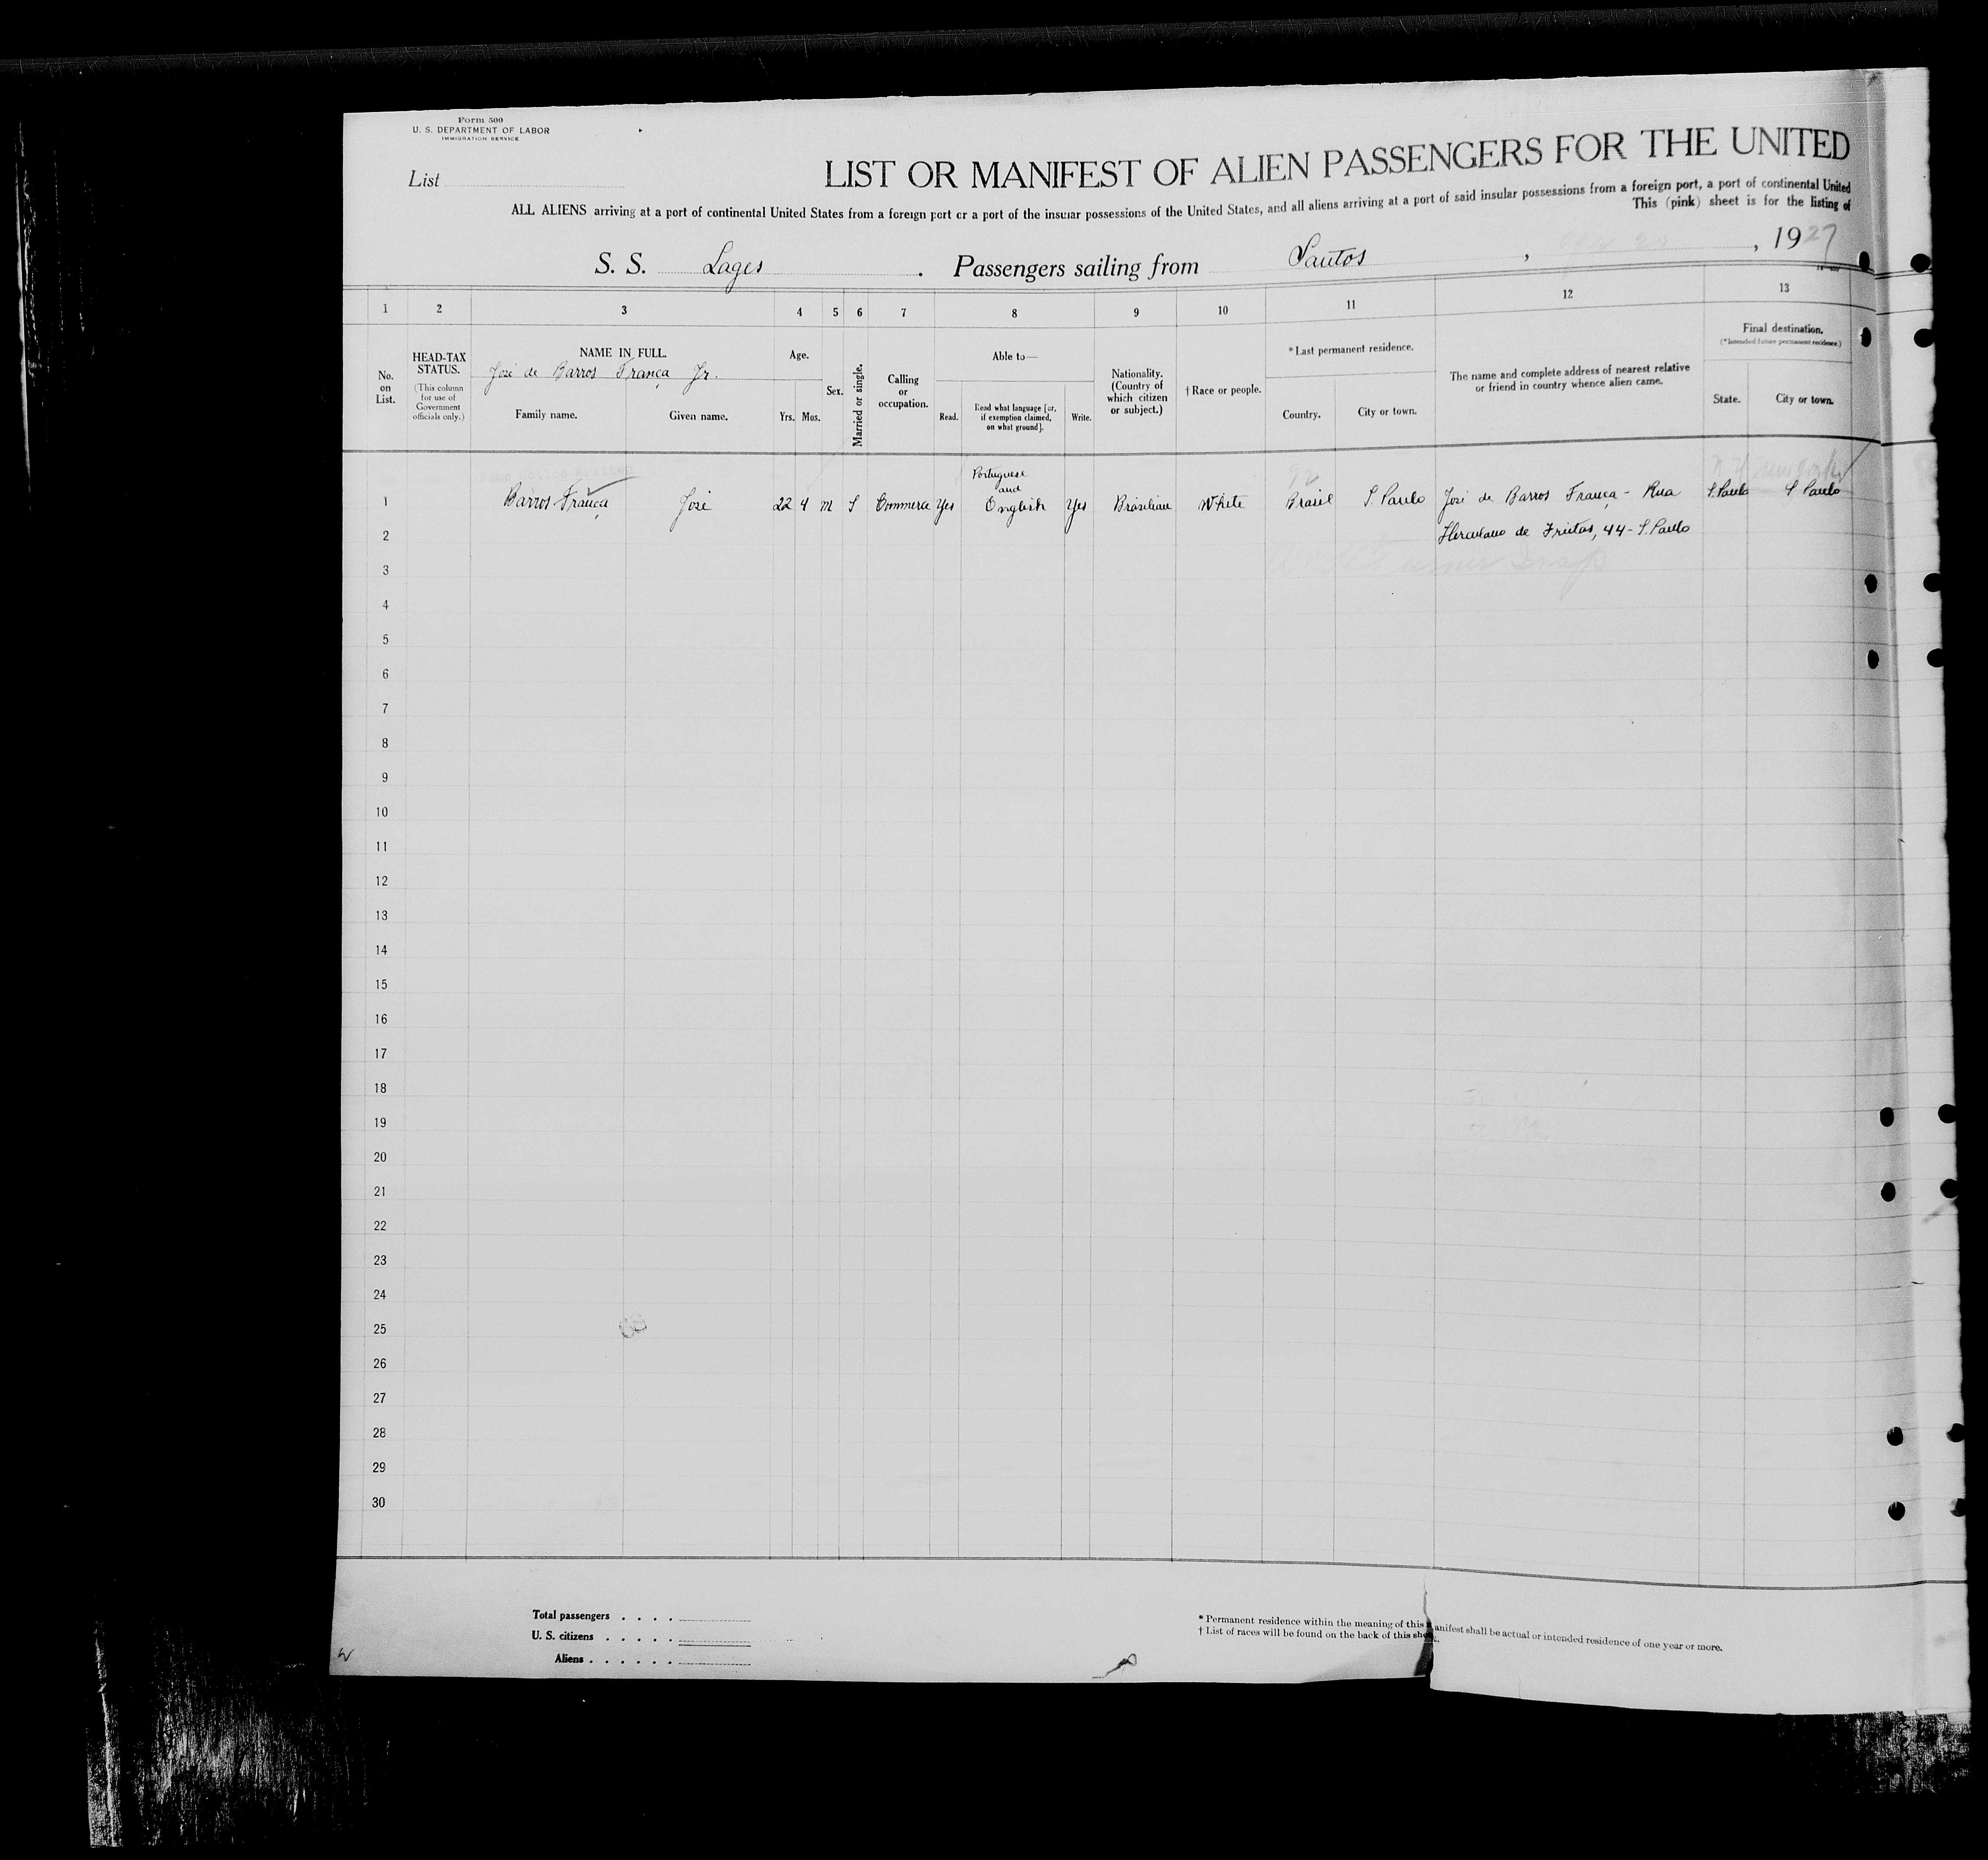 Form 500
U. S. DEPARTMENT OF LABOR
IMMIGRATION SERVICE
List
LIST OR MANIFEST OF ALIEN PASSENGERS FOR THE UNITED
ALL ALIENS arriving at a port of continental United States from a foreign port or a port of the insular possessions of the United States, and all aliens arriving at a port of said insular possessions from a foreign port, a port of continental United
This (pink) sheet is for the listing of
S. S. Lages . Passengers sailing from Santos , , 1927
1 2 3 4 5 6 7 8 9 10 11 12 13
No. on List.
HEAD-TAX STATUS.
(This column for use of Government officials only.)
NAME IN FULL.
José de Barros França Jr.
Family name. Given name.
Age.
Yrs. Mos.
Sex.
Married or single.
Calling or occupation.
Able to—
Read. Read what language [or, if exemption claimed, on what ground]. Write.
Nationality. (Country of which citizen or subject.)
† Race or people.
* Last permanent residence.
Country. City or town.
The name and complete address of nearest relative or friend in country whence alien came.
Final destination.
(* Intended future permanent residence.)
State. City or town.
92
Portuguese and
1 Barros França José 22 4 m S Commerce Yes English Yes Brasilian White Brasil S. Paulo José de Barros França - Rua S. Paulo S. Paulo
2 Herculano de Freitas, 44 - S. Paulo
3
4
5
6
7
8
9
10
11
12
13
14
15
16
17
18
19
20
21
22
23
24
25
26
27
28
29
30
Total passengers . . . .
U. S. citizens . . . . .
Aliens . . . . . .
* Permanent residence within the meaning of this manifest shall be actual or intended residence of one year or more.
† List of races will be found on the back of this sheet.